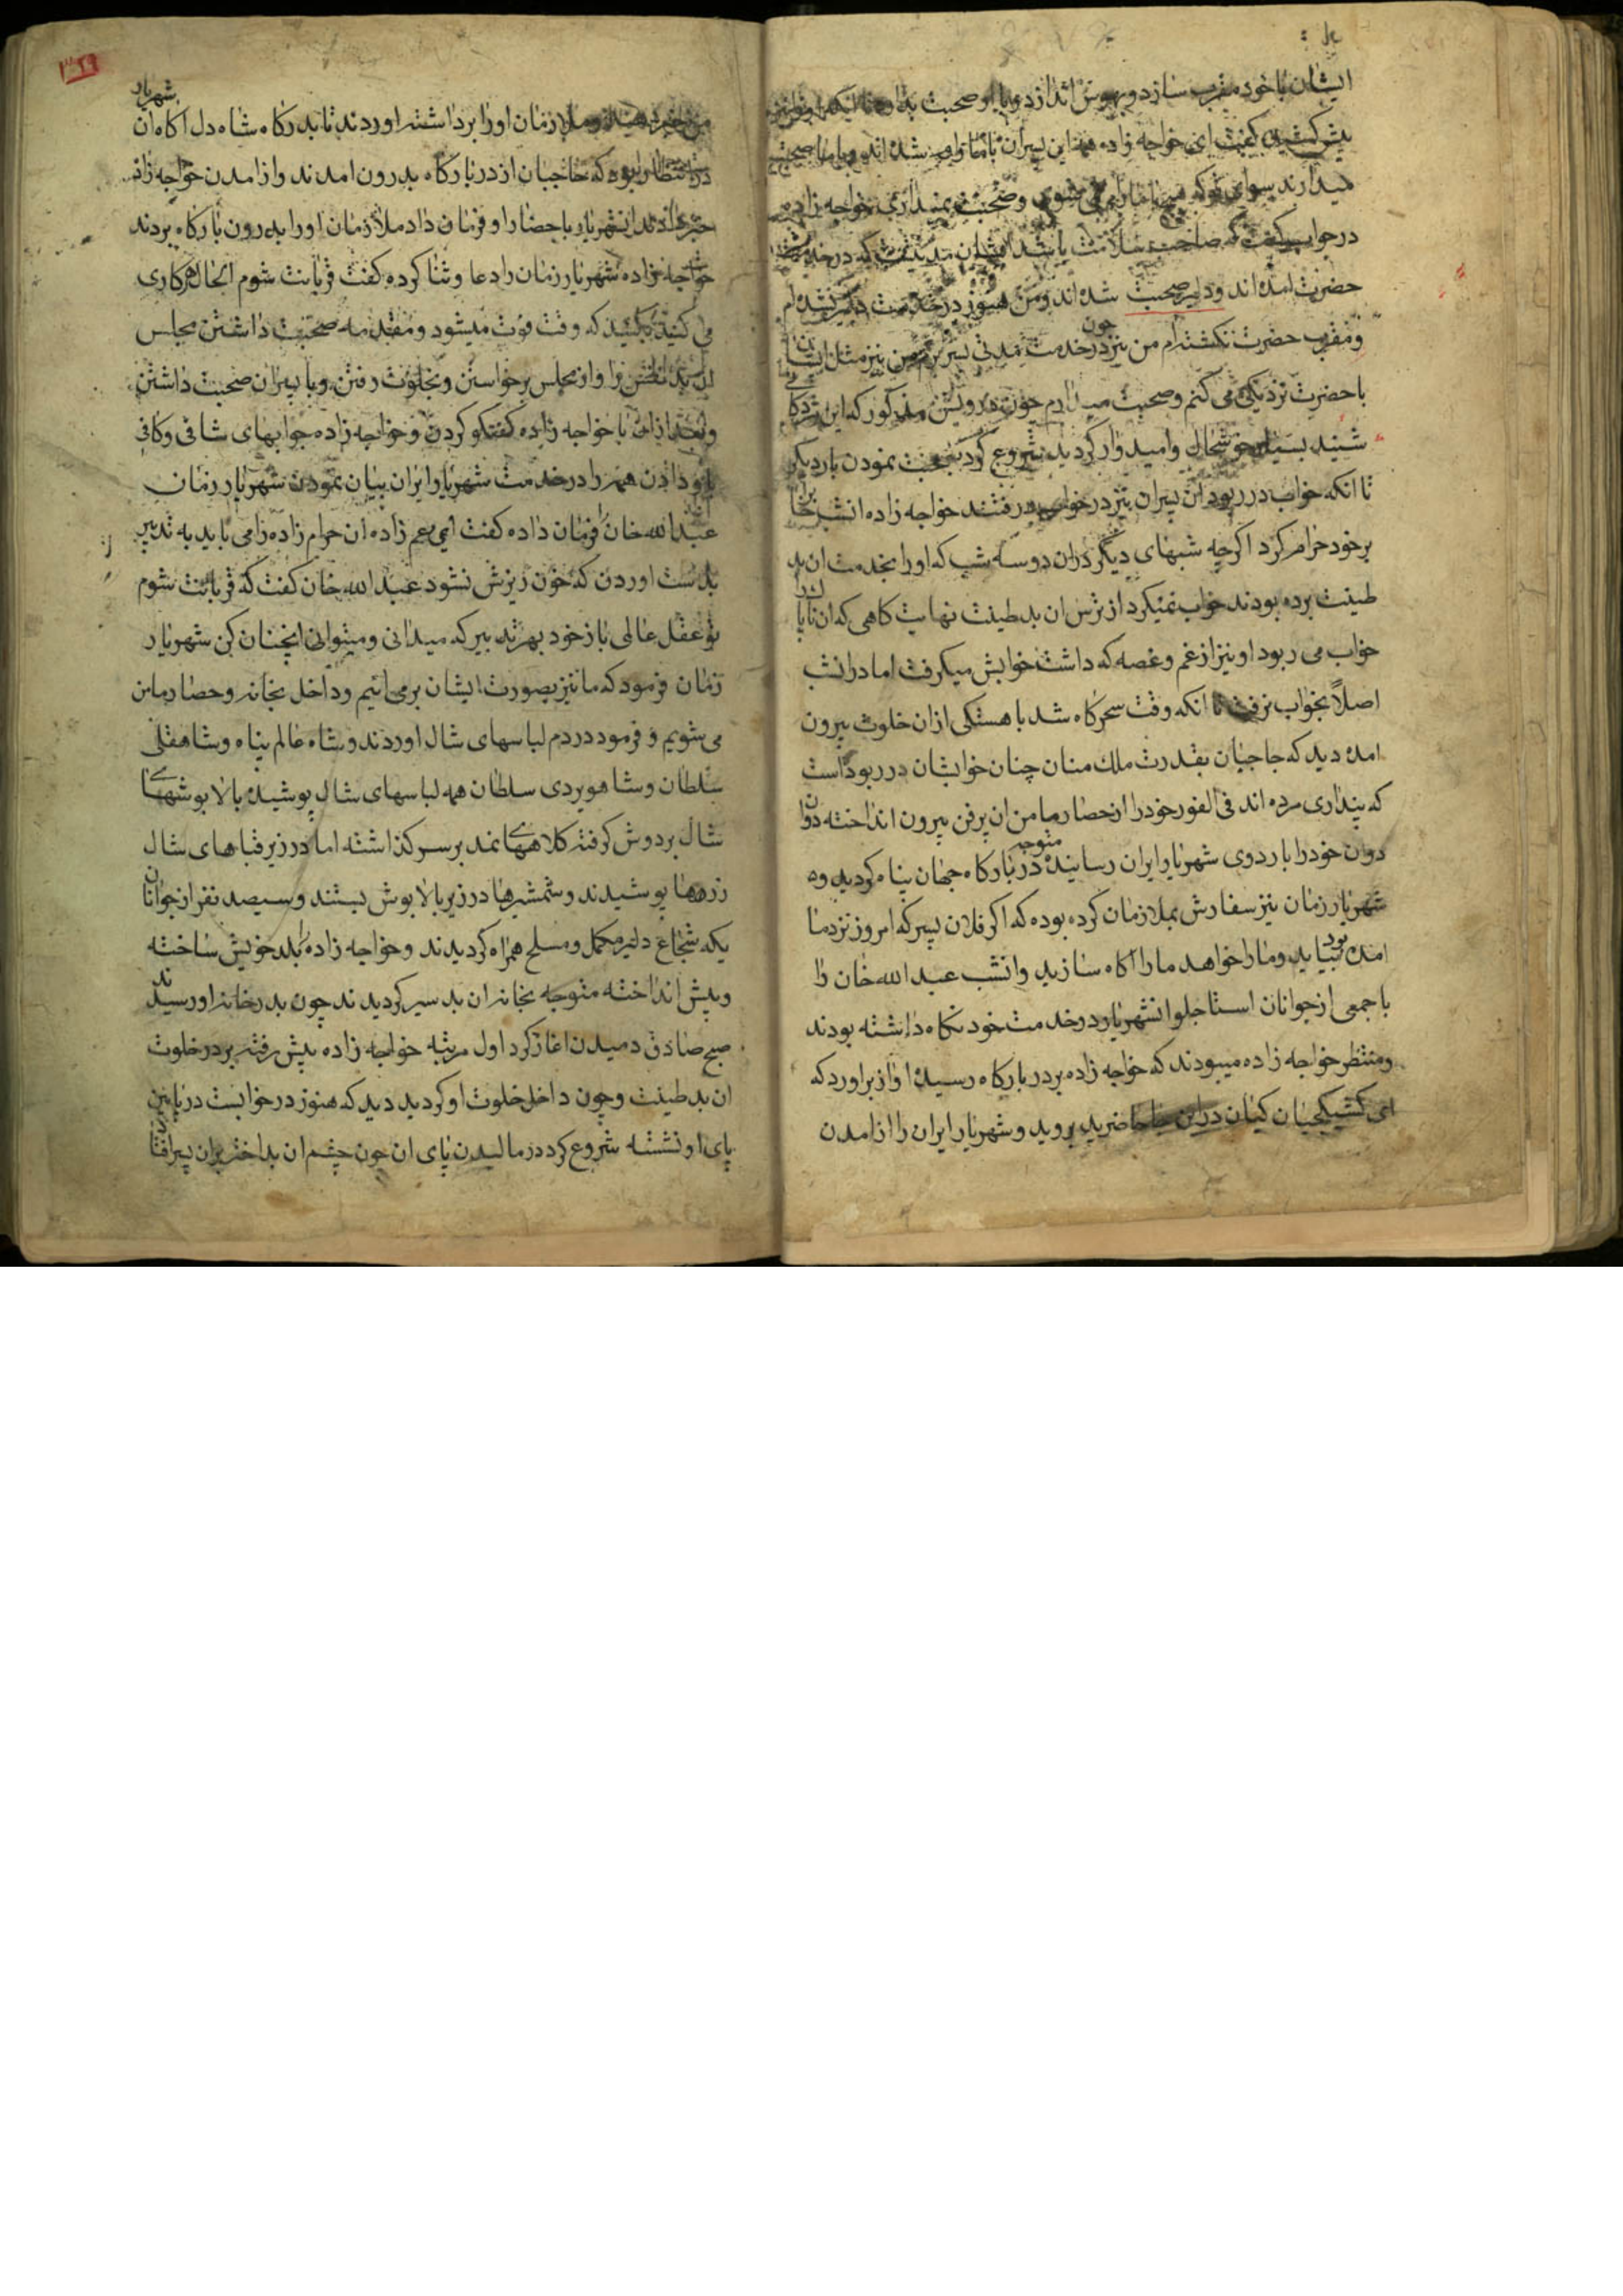 ایشان با خود مقرب سازد و بیهوش اندازد و با او صحبت بدارد
پیش کشیده گفت ای خواجه زاده همه این پسران با ما شده اند و با ما صحبت
میدارند سوای تو که می شوی و صحبت نمیداری خواجه زاده
در جواب گفت که صاحب سلامت باشد ایشان مدتیست که در خدمت
حضرت امده اند و دلیر صحبت شده اند و من هنوز در خدمت دلیر نشده ام
و مقرب حضرت نگشته ام من نیز چون در خدمت مدتی بسر برم من نیز مثل ایشان
با حضرت نزدیکی می کنم و صحبت میدارم چون درویش مذکور که این
شنید بسیار خوشحال و امیدوار گردید شروع کرد بصحبت نمودن بار دیگر
تا انکه خواب در ربود ان پسران نیز در خواب رفتند خواجه زاده انشب خواب را
بر خود حرام کرد اگر چه شبهای دیگر دران دو سه شب که او را بخدمت ان بد
طینت برده بودند خواب نمیکرد از ترس ان بد طینت نهایت کاهی که ان ناپاک را
خواب می ربود او نیز از غم و غصه که داشت خوابش میگرفت اما در انشب
اصلاً بخواب نرفت تا انکه وقت سحرکاه شد باهستگی ازان خلوت بیرون
امده دید که حاجیان بقدرت ملک منان چنان خوابشان در ربوده است
که پنداری مرده اند فی الفور خود را از حصار مامن ان پر فن بیرون انداخته دوان
دوان خود را باردوی شهریار ایران رسانیده متوجه دربارکاه جهان پناه گردید و
شهریار زمان نیز سفارش بملازمان کرده بوده که اگر فلان پسر که امروز نزد ما
امده بود بیاید و ما را خواهد ما را اکاه سازید وانشب عبد الله خان را
با جمعی از جوانان استاجلو انشهریار در خدمت خود نکاه داشته بودند
و منتظر خواجه زاده میبودند که خواجه زاده بردر بارکاه رسیده اواز براورد که
ای کشیکچیان کیان در این جا حاضرید بروید و شهریار ایران را از امدن
من خبر دهید و ملازمان او را برداشته اوردند تا بدرکاه شاه دل اکاه ان شهریار
در انتظار بود که حاجبان از دربارکاه بدرون امدند و از امدن خواجه زاده
خبر دادند انشهریار باحضار او فرمان داد ملازمان او را بدرون بارکاه بردند
خواجه زاده شهریار زمان را دعا و ثنا کرده گفت قربانت شوم الحال هر کاری
می کنید بکنید که وقت فوت میشود و مقدمه صحبت داشتن مجلس
ان بد را و از مجلس برخواستن و بخلوت رفتن و با پسران صحبت داشتن
و بعد ازان با خواجه زاده گفتگو کردن و خواجه زاده جوابهای شافی و کافی
باو دادن همه را در خدمت شهریار ایران بیان نمودن شهریار زمان
عبدالله خان را فرمان داده گفت ای عم زاده ان حرام زاده را می باید به تدبیر
بدست اوردن که خون ریزش نشود عبد الله خان گفت که قربانت شوم
تو عقل عالمی باز خود بهر تدبیر که میدانی و میتوانی انچنان کن شهریار
زمان فرمود که ما نیز بصورت ایشان برمی ائیم و داخل بخانه و حصار مامن
می شویم و فرمود در دم لباسهای شال اوردند و شاه عالم پناه و شاهقلی
سلطان و شاهویردی سلطان همه لباسهای شال پوشیده بالاپوشهای
شال بر دوش گرفته کلاههای نمد بر سر گذاشته اما در زیر قباهای شال
زرهها پوشیدند و شمشیرها در زیر بالاپوش بستند و سیصد نفر از جوانان
یکه شجاع دلیر مکمل و مسلح همراه گردیدند و خواجه زاده را بلد خویش ساخته
و پیش انداخته متوجه بخانه ان بد سیر گردیدند چون بدرخانه او رسیدند
صبح صادق دمیدن اغاز کرد اول مرتبه خواجه زاده پیش رفته بردر خلوت
ان بد طینت و چون داخل خلوت او گردید دید که هنوز در خوابست در پایین
پای او نشسته شروع کرد در مالیدن پای ان چون چشم ان بداختر بران پسر افتاد